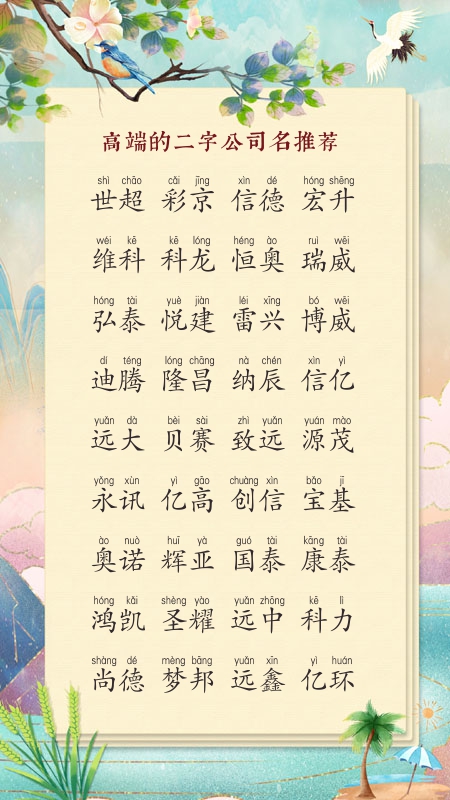 高端的二字公司名推荐
shì chāo cǎi jīng xìn dé hóng shēng
世超 彩京 信德 宏升
wéi kē kē lóng héng ào ruì wēi
维科 科龙 恒奥 瑞威
hóng tài yuè jiàn léi xīng bó wēi
弘泰 悦建 雷兴 博威
dí téng lóng chāng nà chén xìn yì
迪腾 隆昌 纳辰 信亿
yuǎn dà bèi sài zhì yuǎn yuán mào
远大 贝赛 致远 源茂
yǒng xùn yì gāo chuàng xìn bǎo jī
永讯 亿高 创信 宝基
ào nuò huī yà guó tài kāng tài
奥诺 辉亚 国泰 康泰
hóng kǎi shèng yào yuǎn zhōng kē lì
鸿凯 圣耀 远中 科力
shàng dé mèng bāng yuǎn xīn yì huán
尚德 梦邦 远鑫 亿环